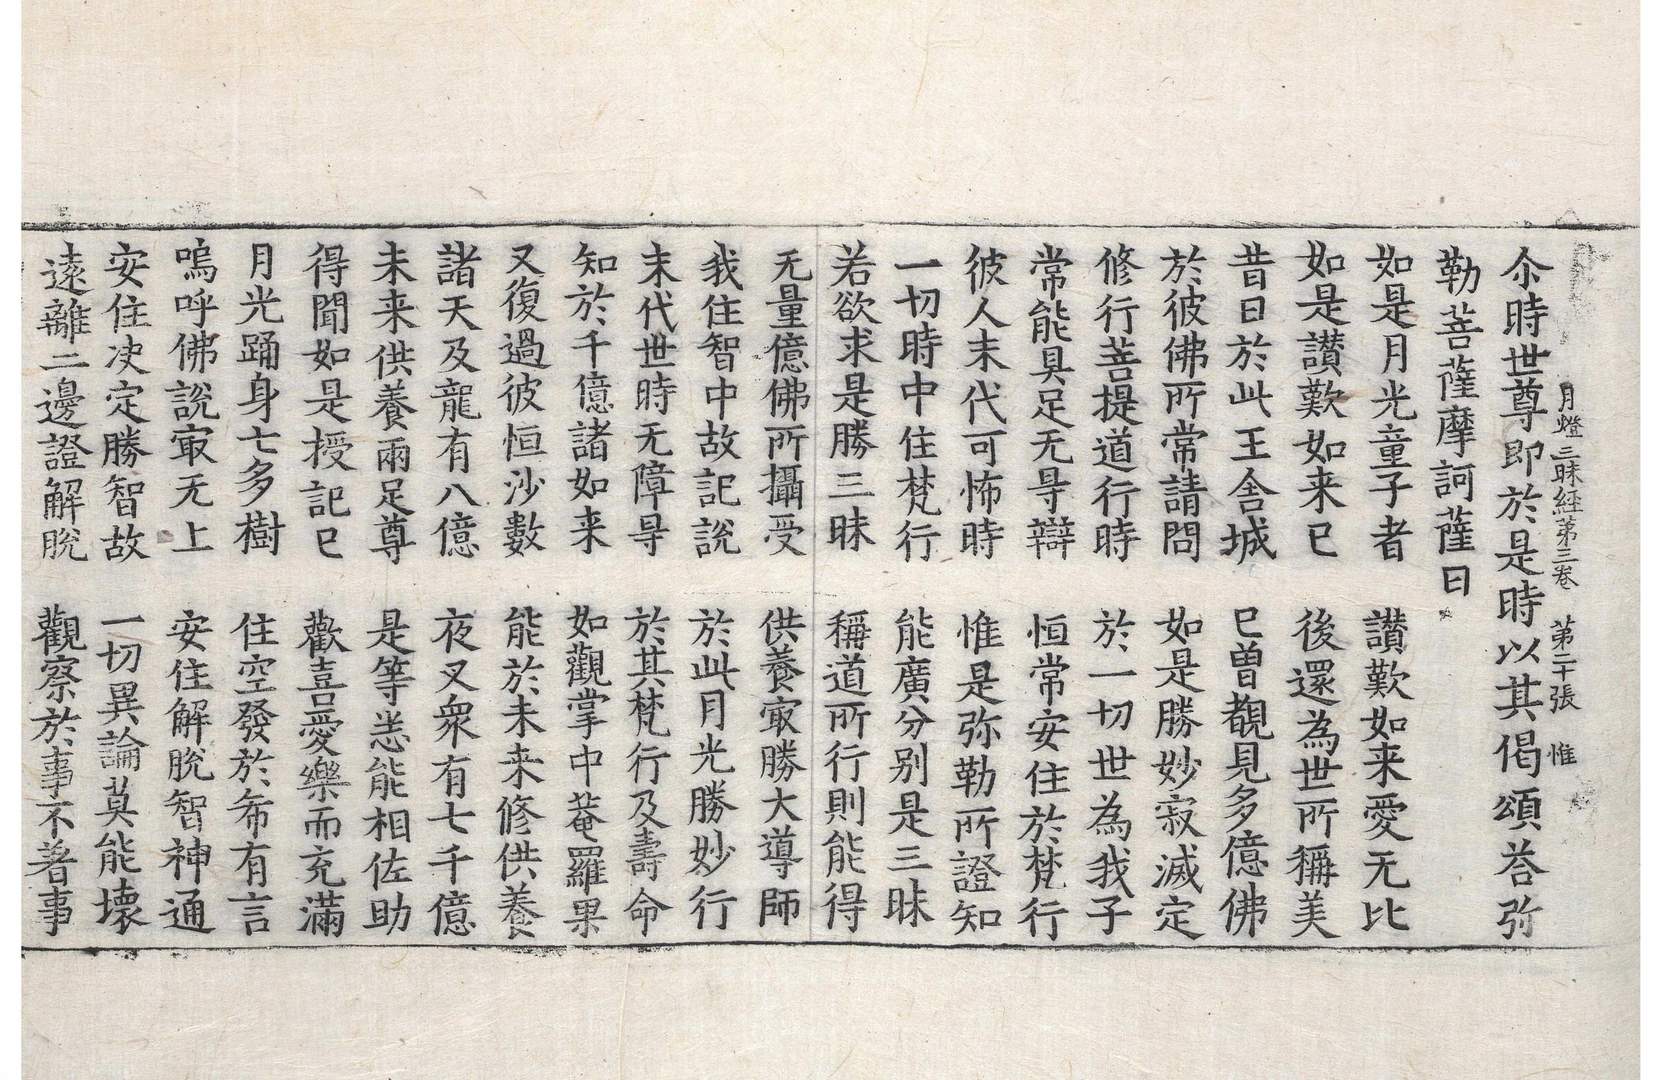 月燈三昧經第三卷　第二十張　惟
尒時世尊即於是時以其偈頌荅弥
勒菩薩摩訶薩曰
如是月光童子者　讃歎如来愛无比
如是讃歎如来已　後還為世所稱美
昔日於此王舍城　已曾覩見多億佛
於彼佛所常請問　如是勝妙寂滅定
修行菩提道行時　於一切世為我子
常能具足无㝵辯　恒常安住於梵行
彼人末代可怖時　惟是弥勒所證知
一切時中住梵行　能廣分别是三昧
若欲求是勝三昧　稱道所行則能得
无量億佛所攝受　供養㝡勝大導師
我住智中故記説　於此月光勝妙行
末代世時无障㝵　於其梵行及壽命
知於千億諸如来　如觀掌中菴羅果
又復過彼恒沙數　能於未来修供養
諸天及龍有八億　夜叉衆有七千億
未来供養兩足尊　是等悉能相佐助
得聞如是授記已　歡喜愛樂而充滿
月光踊身七多樹　住空發於希有言
嗚呼佛説㝡无上　安住解脫智神通
安住决定勝智故　一切異論莫能壞
遠離二邊證解脫　觀察於事不著事